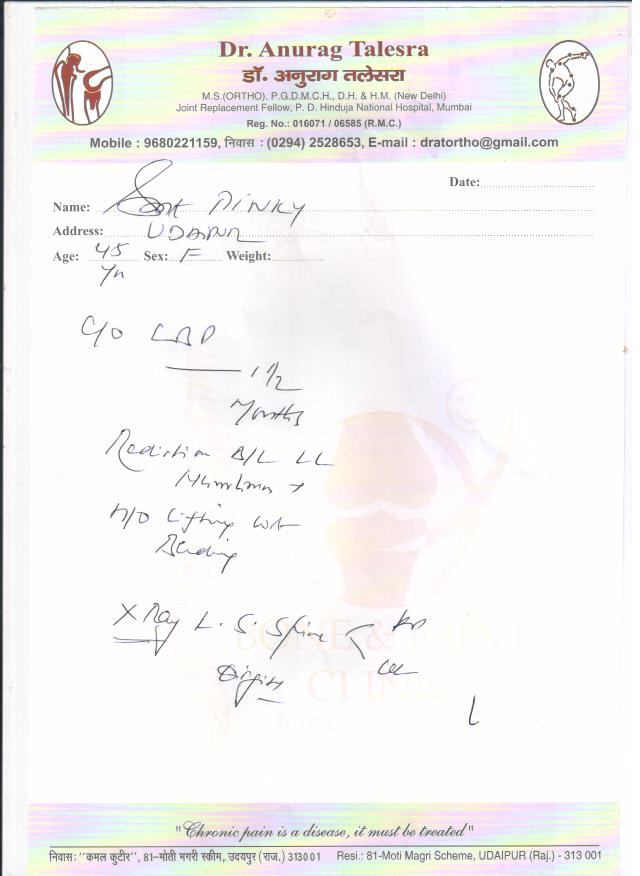 Dr. Anurag Talesra
डॉ. अनुराग तलेसरा
M.S.(ORTHO), P.G.D.M.C.H., D.H. & H.M. (New Delhi)
Joint Replacement Fellow, P. D. Hinduja National Hospital, Mumbai
Reg. No.: 016071 / 06585 (R.M.C.)
Mobile : 9680221159, निवास : (0294) 2528653, E-mail : dratortho@gmail.com
Date:
Name: PINKY
Address: UDAIPUR
Age: 45 Sex: F Weight:
Yr
C/O LBP
1 1/2
Months
Radiation B/L LL
Numbness +
H/O Lifting wt
Bending
X Ray L. S. Spine AP
Digital LAT
BONE & JOINT
CLINIC
"Chronic pain is a disease, it must be treated"
निवास: "कमल कुटीर", 81-मोती मगरी स्कीम, उदयपुर (राज.) 313001 Resi.: 81-Moti Magri Scheme, UDAIPUR (Raj.) - 313 001